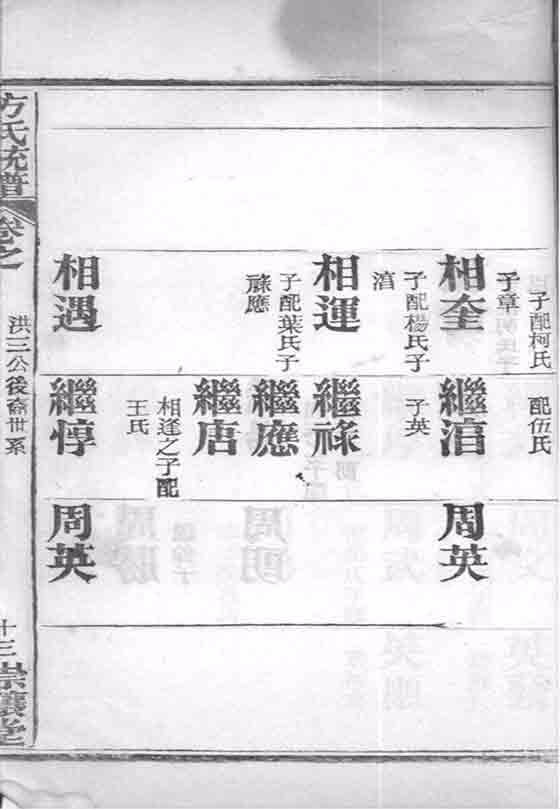 子配柯氏
子章
相奎
子配楊氏子
湻
相運
子配葉氏子
祿應
相遇
配伍氏
繼湻
子英
繼祿
繼應
繼唐
相逢之子配
王氏
繼惇
周英
周英
方氏統譜
卷之
洪三公後裔世系
十三
崇讓堂